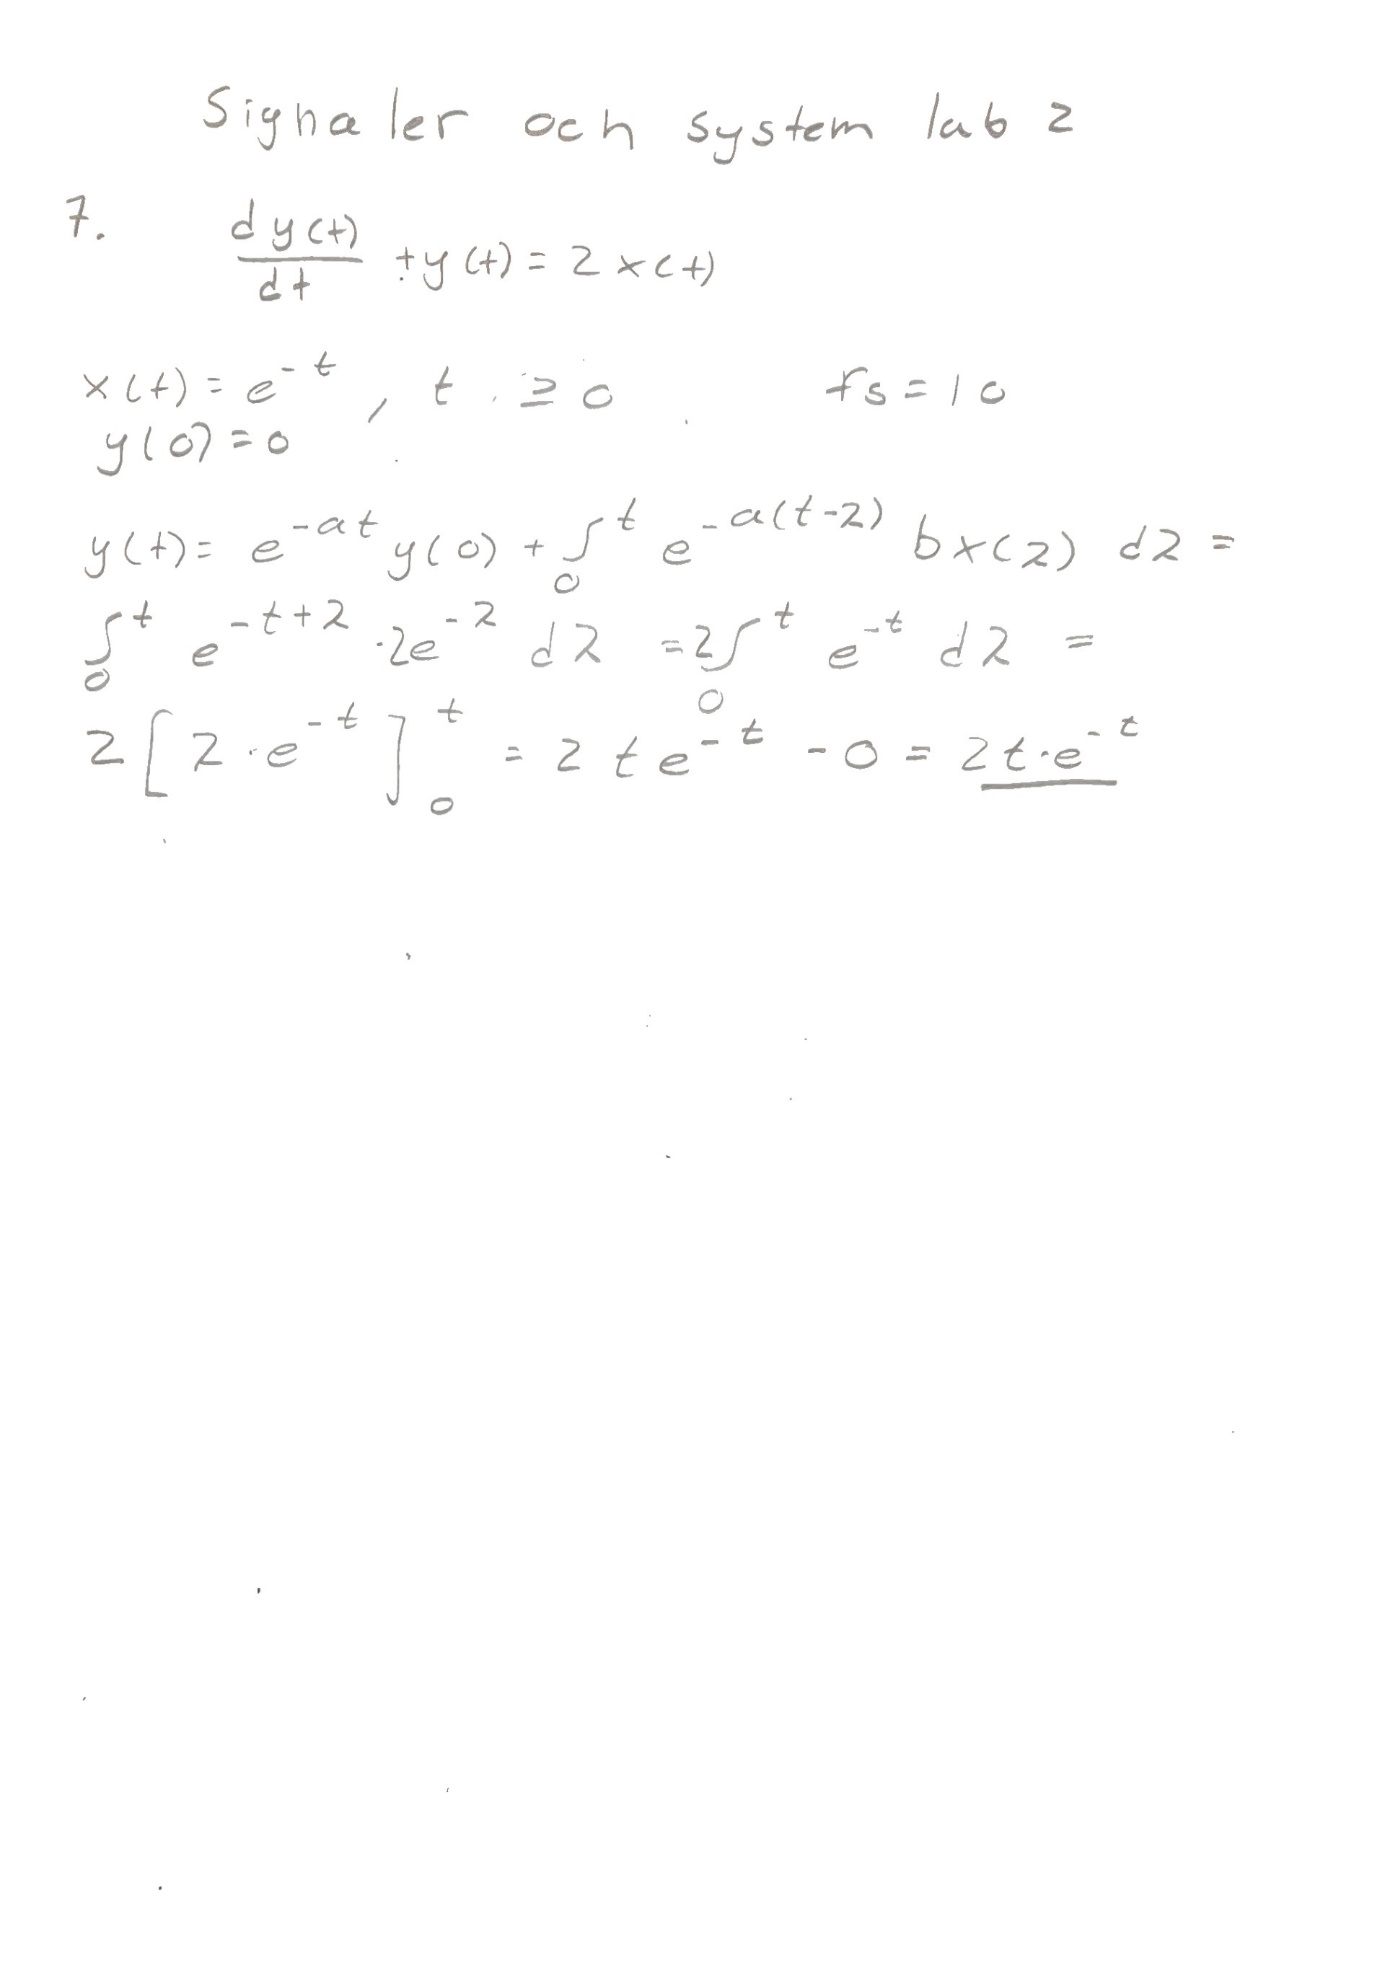 Signaler och system lab 2
7. dy(t)/dt + y(t) = 2x(t)
x(t) = e^-t , t ≥ 0 fs = 10
y(0) = 0
y(t) = e^-at y(0) + ∫_0^t e^-a(t-2) bx(2) d2 =
∫_0^t e^-t+2 · 2e^-2 d2 = 2∫_0^t e^-t d2 =
2[2·e^-t]_0^t = 2te^-t - 0 = 2t·e^-t